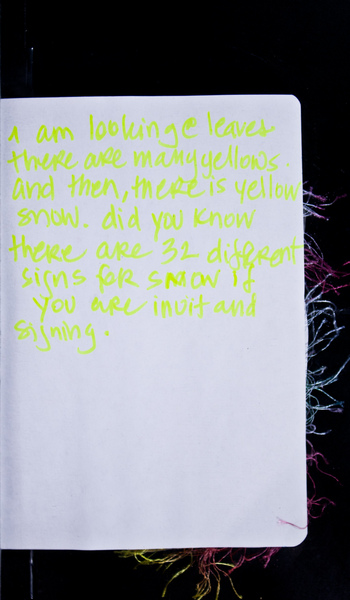 1 am looking@ leaves
there are many yellows.
and then, there is yellow
snow. did you know
there are 32 different
signs for snow if
you are inuit and
signing.